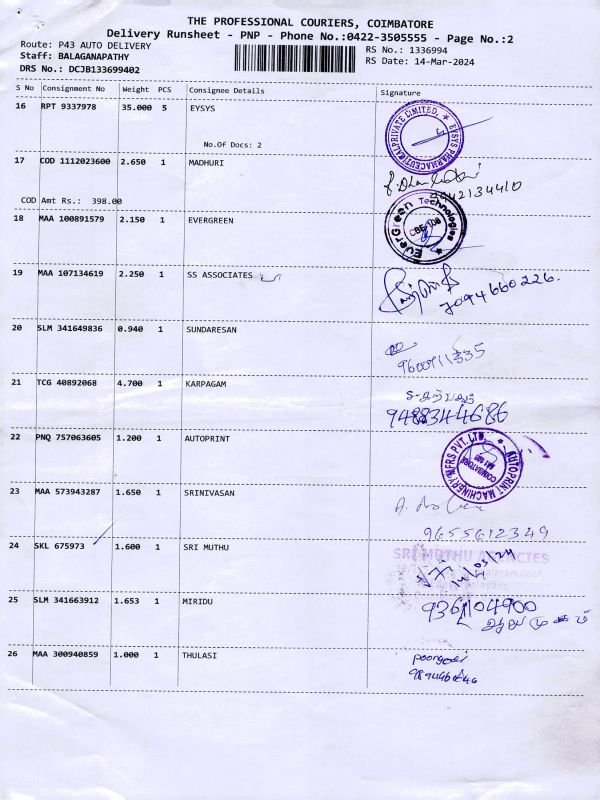 THE PROFESSIONAL COURIERS, COIMBATORE
Delivery Runsheet - PNP - Phone No.:0422-3505555 - Page No.:2
Route: P43 AUTO DELIVERY
Staff: BALAGANAPATHY
DRS No.: DCJB133699402
RS No.: 1336994
RS Date: 14-Mar-2024
S No Consignment No Weight PCS Consignee Details Signature
16 RPT 9337978 35.000 5 EYSYS
No.Of Docs: 2
EYSYS PHARMACEUTICAL PRIVATE LIMITED.
17 COD 1112023600 2.650 1 MADHURI
COD Amt Rs.: 398.00
18 MAA 100891579 2.150 1 EVERGREEN
EverGreen Technologies
19 MAA 107134619 2.250 1 SS ASSOCIATES
7094660226.
20 SLM 341649836 0.940 1 SUNDARESAN
21 TCG 40892068 4.700 1 KARPAGAM
S-கற்பகம்
9488344686
22 PNQ 757063605 1.200 1 AUTOPRINT
AUTOPRINT MACHINERY MFRS PVT. LTD.
COIMBATORE
23 MAA 573943287 1.650 1 SRINIVASAN
9655612349
24 SKL 675973 1.600 1 SRI MUTHU
SRI MUTHU AGENCIES
14/03/24
25 SLM 341663912 1.653 1 MIRIDU
9361104900
ஆறுமுகம்
26 MAA 300940859 1.000 1 THULASI
poongodi